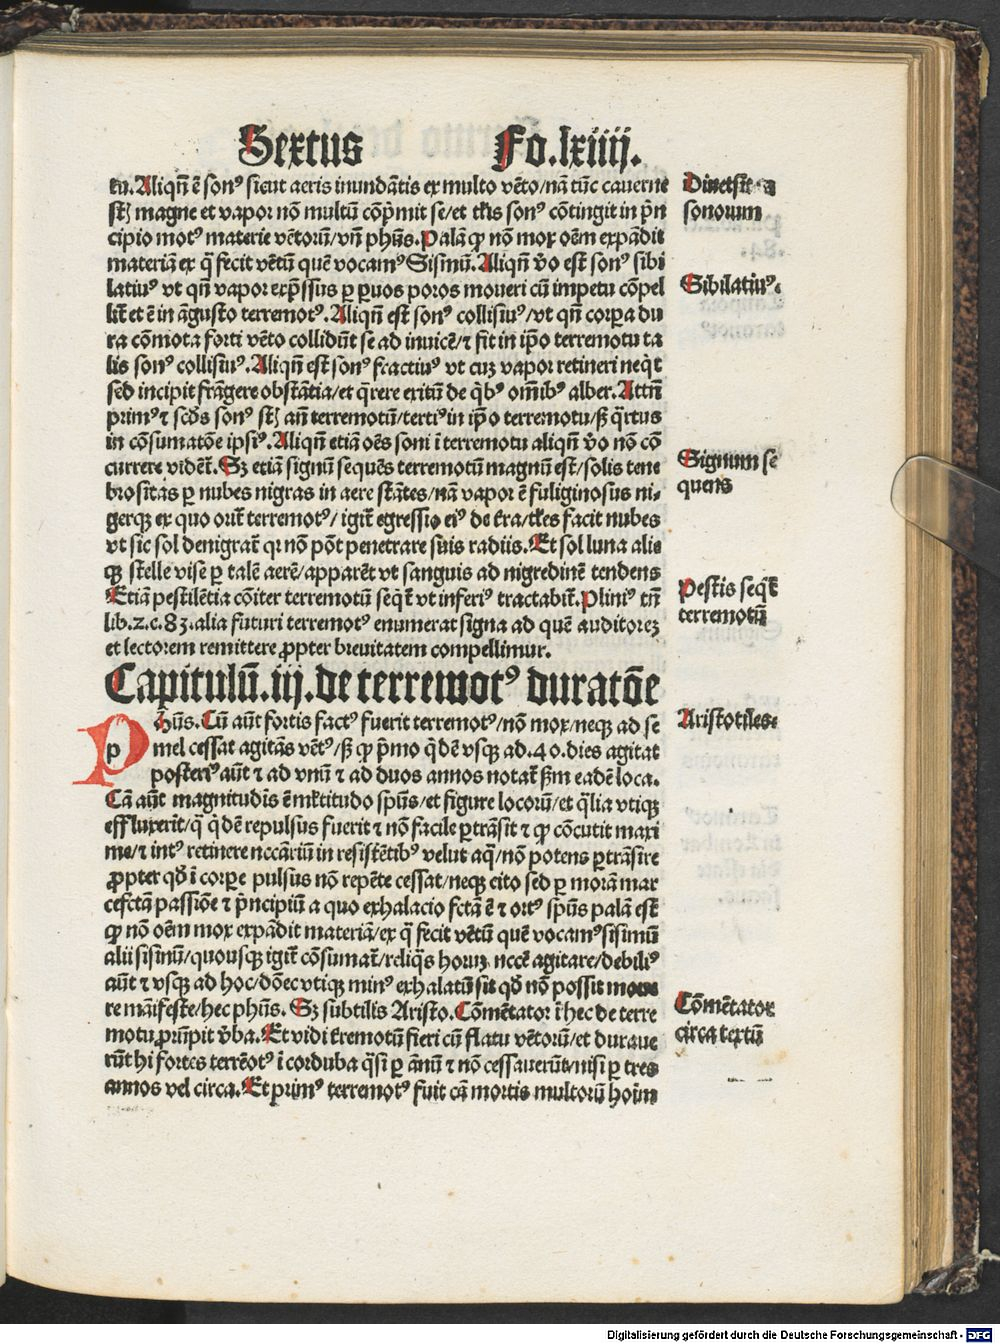 Sextus Fo.lxiiij.
tu. Aliqñ ē sonꝰ sicut aeris inundãtis ex multo vẽto/nã tũc cauerne
st̃ magne et vapor nõ multũ cõp̃mit se/et t̃lis sonꝰ cõtingit in p̃n
cipio motꝰ materie vẽtorũ/vñ ph̃us. Palã ꝙ nõ mox oẽm expãdit
materiã ex q̃ fecit vẽtũ quẽ vocamꝰ Sismũ. Aliqñ ṽo est sonꝰ sibi
latiuꝰ vt qñ vapor exp̃ssus ꝑ ꝑuos poros moueri cũ impetu cõpel
lit̃ et ē in ãgusto terremotꝰ. Aliqñ est sonꝰ collisiuꝰ/vt qñ corꝑa du
ra cõmota forti vẽto collidũt se ad inuicẽ/⁊ fit in ip̃o terremotu ta
lis sonꝰ collisiuꝰ. Aliqñ est sonꝰ fractiuꝰ vt cuꝫ vapor retineri neq̃t
sed incipit frãgere obstãtia/et q̃rere exitũ de q̃bꝰ om̃ibꝰ alber. Attñ
primꝰ ⁊ scd̃s sonꝰ st̃ añ terremotũ/tertiꝰ in ip̃o terremotu/ß q̃rtus
in cõsumatõe ipsiꝰ. Aliqñ etiã oẽs soni ĩ terremotu aliqñ ṽo nõ cõ
currere vidẽt̃. Sꝫ etiã signũ sequẽs terremotũ magnũ est/solis tene
brositas ꝑ nubes nigras in aere stãtes/nã vapor ē fuliginosus ni⸗
gerqꝫ ex quo orit̃ terremotꝰ/igit̃ egressio eiꝰ de t̃ra/t̃les facit nubes
vt sic sol denigrat̃ qꝛ nõ põt penetrare suis radiis. Et sol luna alie
qꝫ stelle vise ꝑ talẽ aerẽ/apparẽt vt sanguis ad nigredinẽ tendens
Etiã pestilẽtia cõiter terremotũ seq̃t̃ vt inferiꝰ tractabit̃. Pliniꝰ tñ
lib.2.c.83.alia futuri terremotꝰ enumerat signa ad quẽ auditoreꝫ
et lectorem remittere ꝓpter breuitatem compellimur.
Capitulũ.iij.de terremotꝰ duratõe
p h̃us. Cũ aũt fortis factꝰ fuerit terremotꝰ/nõ mox/neqꝫ ad se
mel cessat agitãs vẽtꝰ/ß ꝙ p̃mo q̃dẽ vsqꝫ ad.40.dies agitat
posteriꝰ aũt ⁊ ad vnũ ⁊ ad duos annos notat̃ ẜm eadẽ loca.
Cã aũt magnitudĩs ē ml̃titudo sp̃us/et figure locorũ/et q̃lia vtiqꝫ
effluxerit/q̃ q̃dẽ repulsus fuerit ⁊ nõ facile ꝑtrãsit ⁊ ꝙ cõcutit maxi
me/⁊ intꝰ retinere nc̃cãriũ in resistẽtibꝰ velut aq̃/nõ potens ꝑtrãsire
ꝓpter qð ĩ corꝑe pulsus nõ repẽte cessat/neqꝫ cito sed ꝑ morã mar
cefctã passiõe ⁊ p̃ncipiũ a quo exhalacio fctã ē ⁊ ortꝰ sp̃us palã est
ꝙ nõ oẽm mox expãdit materiã/ex q̃ fecit vẽtũ quẽ vocamꝰ sisimũ
alii sisinũ/quousqꝫ igit̃ cõsumat̃/reliq̃s horuꝫ ncc̃e agitare/debiliꝰ
aũt ⁊ vsqꝫ ad hoc/dõec vtiqꝫ minꝰ exhalatũ sit qð nõ possit moue
re mãifeste/hec ph̃us. Sꝫ subtilis Aristo. Cõmẽtator ĩ hec de terre
motu ꝓrũpit ṽba. Et vidi t̃remotũ fieri cũ flatu vẽtorũ/et duraue
rũt hi fortes terrẽotꝰ ĩ corduba q̃si ꝑ ãnũ ⁊ nõ cessauerũt/nisi ꝑ tres
annos vel circa. Et primꝰ terremotꝰ fuit cã mortis multorũ hoĩm
sonorum
Sibilatiuꝰ.
Signum se
quens
Pestis seq̃t̃
terremotũ
Aristotiles⸗
Cõmẽtator
circa textũ
Digitalisierung gefördert durch die Deutsche Forschungsgemeinschaft - DFG